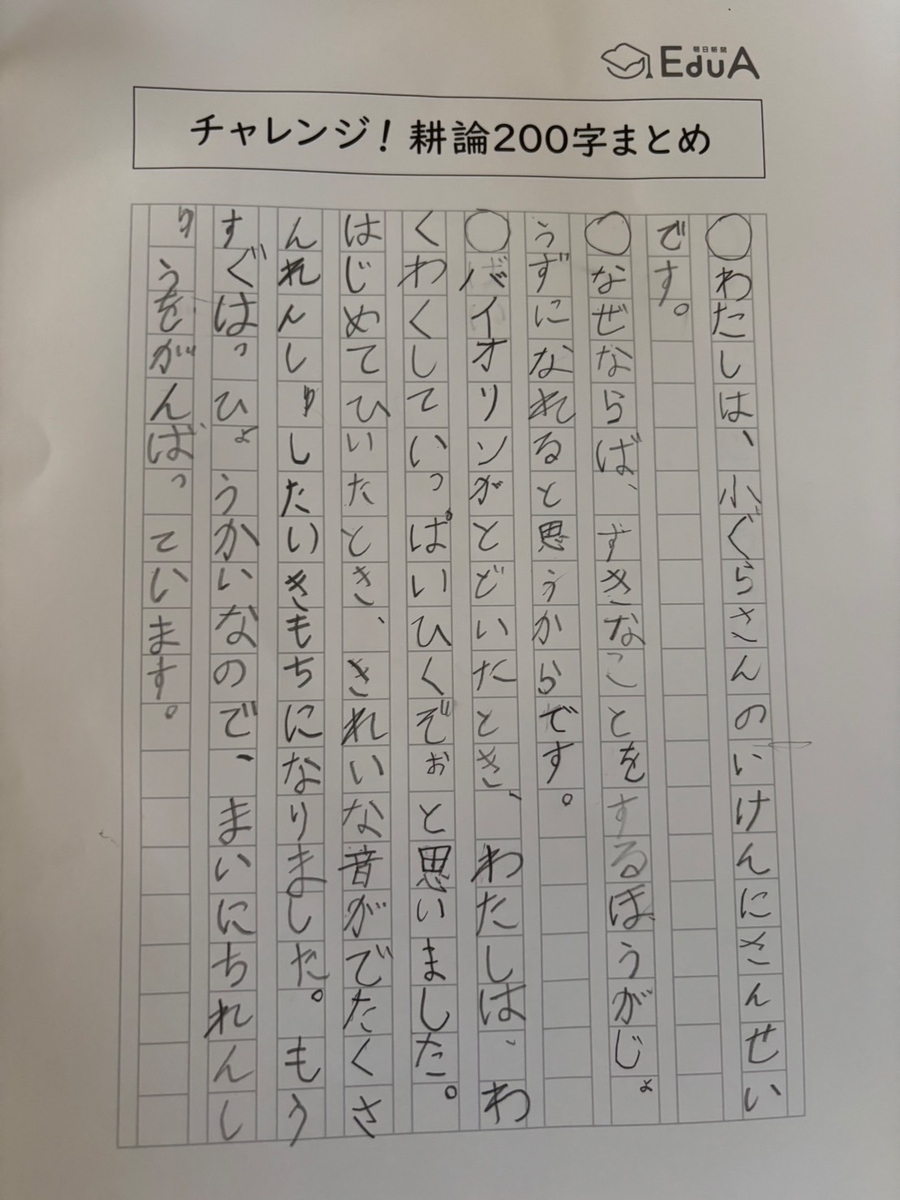 朝日新聞
EduA
チャレンジ！耕論200字まとめ
○わたしは、小ぐらさんのいけんにさんせい
です。
○なぜならば、すきなことをするほうがじょ
うずになれると思うからです。
○バイオリンがとどいたとき、わたしは、わ
くわくしていっぱいひくぞぉと思いました。
はじめてひいたとき、きれいな音がでたくさ
んれんしゅしたいきもちになりました。もう
すぐはっぴょうかいなので、まいにちれんし
ゅうをがんばっています。